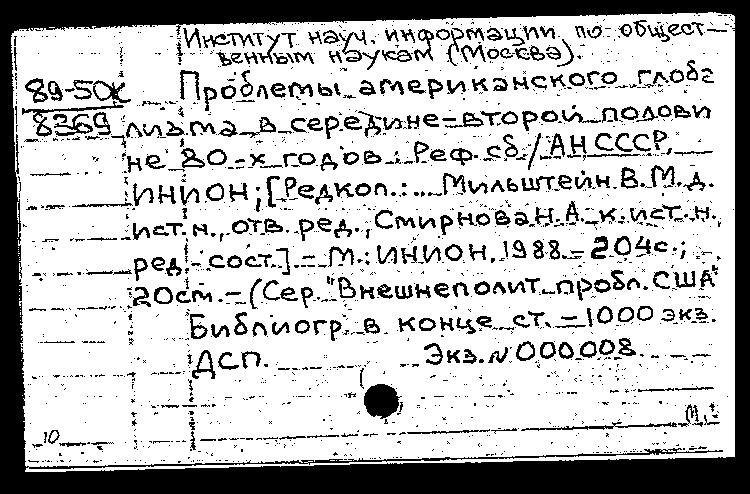 Институт науч. информации по общест-
венным наукам (Москва).
89-50к Проблемы американского глоба
8369 лизма в середине-второй полови
не 80-х годов: Реф. сб/АН СССР,
ИНИОН; [Редкол.: ... Мильштейн В.М. д.
ист. н., отв. ред., Смирнова Н.А. к. ист. н.,
ред.-сост.]. - М.: ИНИОН, 1988. - 204с.;
20см. - (Сер. "Внешнеполит. пробл. США"
Библиогр. в конце ст. - 1000 экз.
ДСП. Экз. N 000008.
10